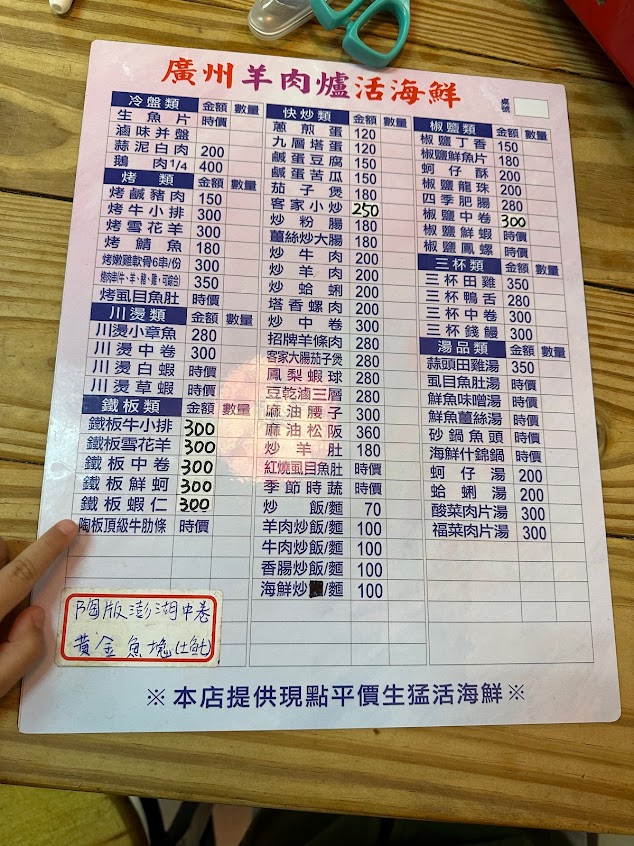 廣州羊肉爐活海鮮
桌號
冷盤類 金額 數量
生魚片 時價
滷味并盤
蒜泥白肉 200
鵝肉1/4 400
烤類 金額 數量
烤鹹豬肉 150
烤牛小排 300
烤雪花羊 300
烤鯖魚 180
烤嫩雞軟骨6串/份 300
烤肉串(牛、羊、雞、可綜合) 350
烤虱目魚肚 時價
川燙類 金額 數量
川燙小章魚 280
川燙中卷 300
川燙白蝦 時價
川燙草蝦 時價
鐵板類 金額 數量
鐵板牛小排 300
鐵板雪花羊 300
鐵板中卷 300
鐵板鮮蚵 300
鐵板蝦仁 300
陶板頂級牛肋條 時價
陶版澎湖中卷
黃金魚塊(土魠)
快炒類 金額 數量
蔥煎蛋 120
九層塔蛋 120
鹹蛋豆腐 150
鹹蛋苦瓜 150
茄子煲 180
客家小炒 250
炒粉腸 180
薑絲炒大腸 180
炒牛肉 200
炒羊肉 200
炒蛤蜊 200
塔香螺肉 200
炒中卷 300
招牌羊條肉 280
客家大腸茄子煲 280
鳳梨蝦球 280
豆乾滷三層 280
麻油腰子 300
麻油松阪 360
炒羊肚 180
紅燒虱目魚肚 時價
季節時蔬 時價
炒飯/麵 70
羊肉炒飯/麵 100
牛肉炒飯/麵 100
香腸炒飯/麵 100
海鮮炒/麵 100
椒鹽類 金額 數量
椒鹽丁香 150
椒鹽鮮魚片 180
蚵仔酥 200
椒鹽龍珠 200
四季肥腸 280
椒鹽中卷 300
椒鹽鮮蝦 時價
椒鹽鳳螺 時價
三杯類 金額 數量
三杯田雞 350
三杯鴨舌 280
三杯中卷 300
三杯錢鰻 300
湯品類 金額 數量
蒜頭田雞湯 350
虱目魚肚湯 時價
鮮魚味噌湯 時價
鮮魚薑絲湯 時價
砂鍋魚頭 時價
海鮮什錦鍋 時價
蚵仔湯 200
蛤蜊湯 200
酸菜肉片湯 300
福菜肉片湯 300
※本店提供現點平價生猛活海鮮※